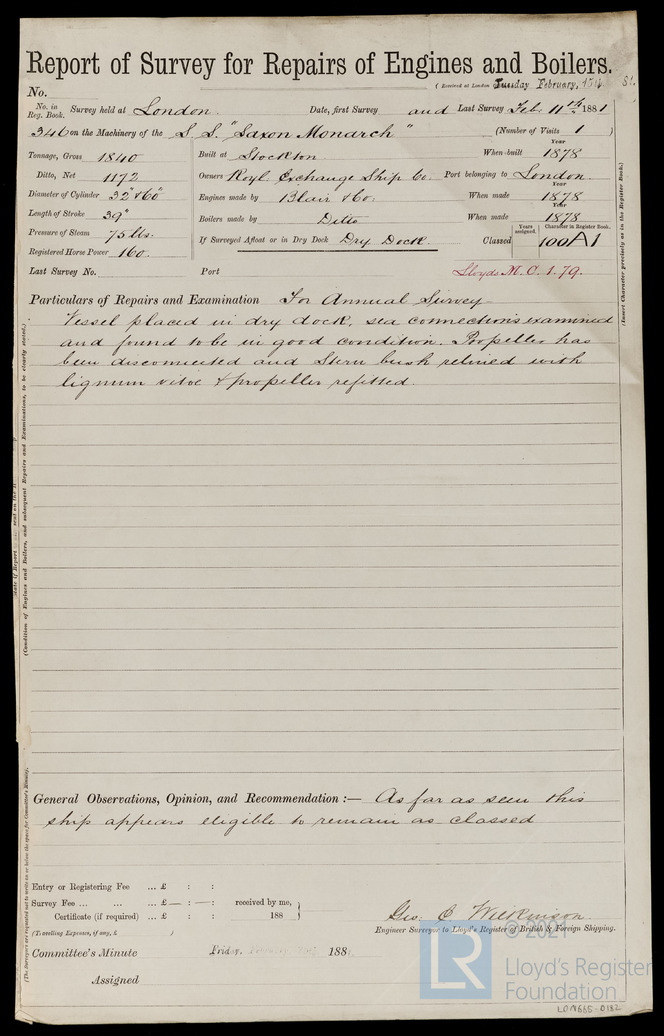 Report of Survey for Repairs of Engines and Boilers.
(Received at London Tuesday February, 81.
No.
No. in Reg. Book. Survey held at London. Date, first Survey and Last Survey Feb. 11th 1881
346 on the Machinery of the S. S. "Saxon Monarch" (Number of Visits 1 )
Tonnage, Gross 1840 Built at Stockton When built Year 1878
Ditto, Net 1172 Owners Royl. Exchange Ship Co. Port belonging to London.
Diameter of Cylinder 32" & 60" Engines made by Blair & Co. When made Year 1878
Length of Stroke 39" Boilers made by Ditto When made Year 1878
Pressure of Steam 75 lbs. If Surveyed Afloat or in Dry Dock Dry Dock. Classed Years assigned. Character in Register Book. 100A1
Registered Horse Power 160.
Last Survey No. Port Lloyds M. C. 1. 79.
Particulars of Repairs and Examination For Annual Survey
Vessel placed in dry dock, sea connections examined
and found to be in good condition. Propeller has
been disconnected and Stern bush relined with
lignum vitoe & propeller refitted.
General Observations, Opinion, and Recommendation :— As far as seen this
ship appears eligible to remain as classed
Entry or Registering Fee ... £ : :
Survey Fee ... ... ... £ — : — : received by me,
Certificate (if required) ... £ : : 188
(Travelling Expenses, if any, £ )
Geo. C. Wilkinson.
Engineer Surveyor to Lloyd's Register of British & Foreign Shipping.
Committee's Minute Friday, 188
Assigned
(Insert Character precisely as in the Register Book.)
(Condition of Engines and Boilers, and subsequent Repairs and Examinations, to be clearly stated.)
(The Surveyors are requested not to write on or below the space for Committee's Minute.)
© 2021
LR
Lloyd's Register
Foundation
LON665-0132